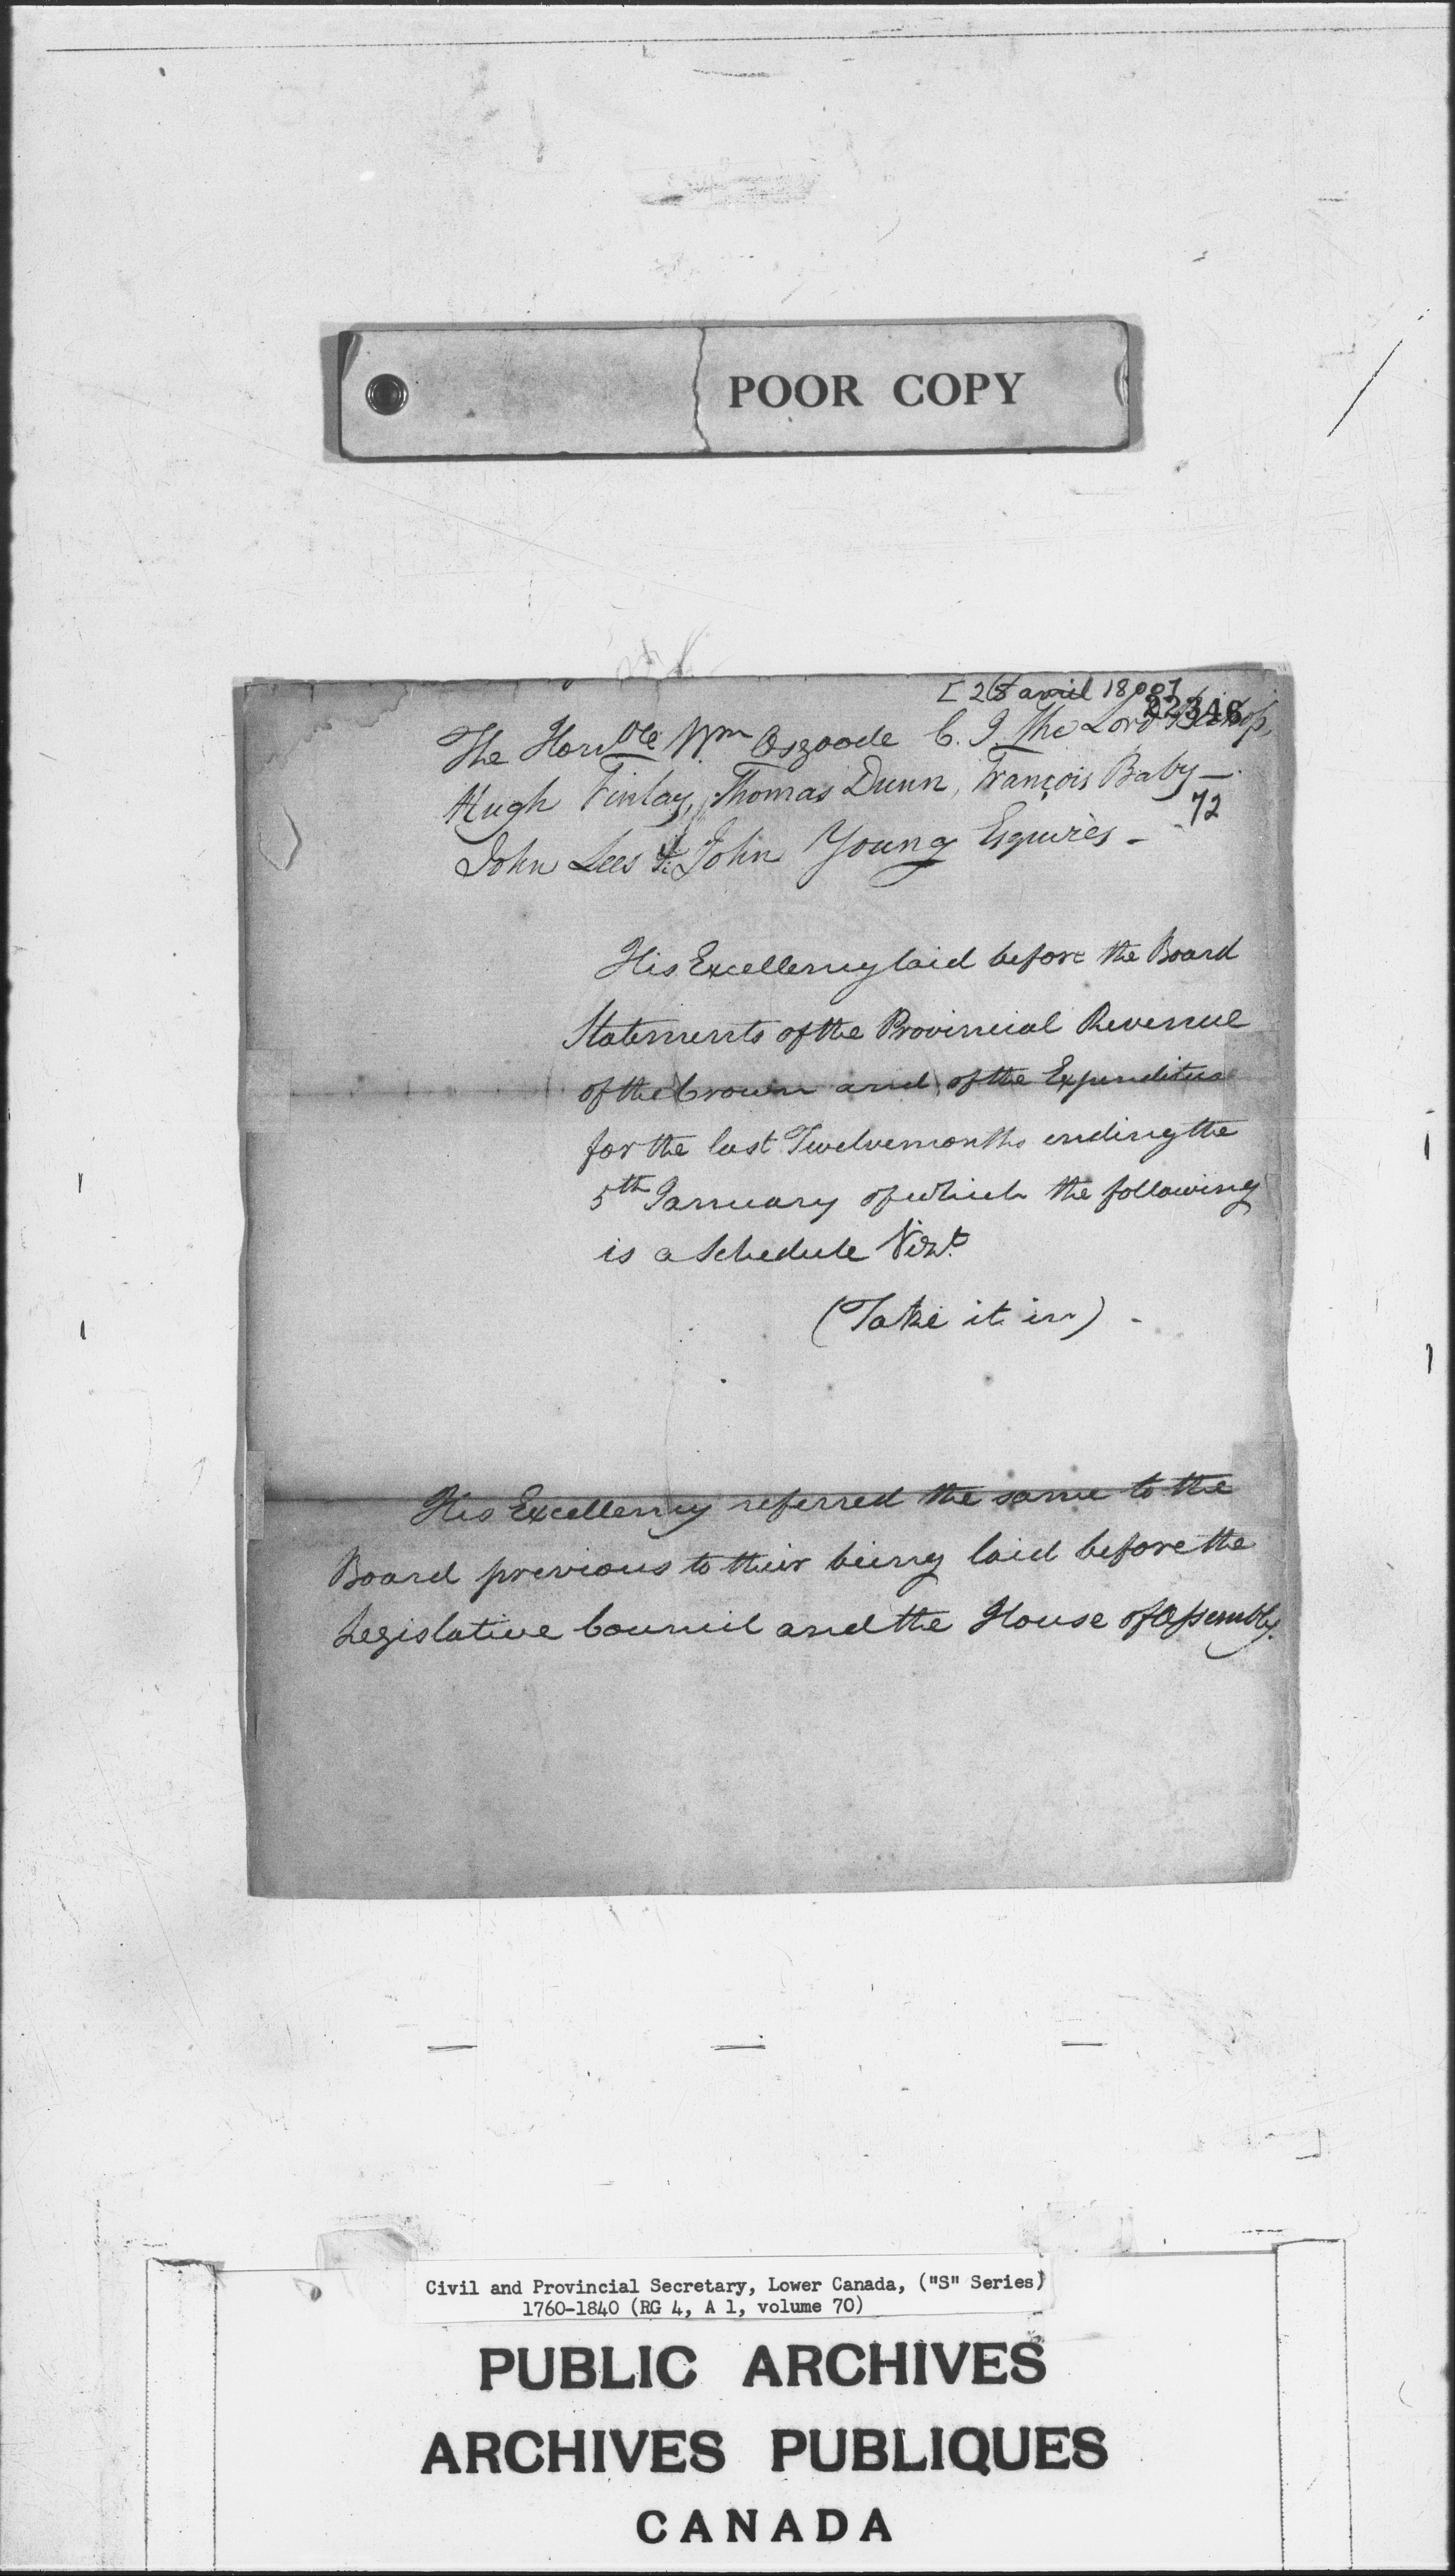 POOR COPY
[28 avril 1800]
22346
The Honble Wm Osgoode C. J. The Lord Bishop,
Hugh Finlay, Thomas Dunn, François Baby —
72
John Lees & John Young Esquires -
His Excellency laid before the Board
Statements of the Provincial Revenue
of the Crown and of the Expenditure
for the last Twelvemonths ending the
5th January of which the following
is a Schedule Vizt.
(Take it in) -
His Excellency referred the same to the
Board previous to their being laid before the
Legislative Council and the House of Assembly.
Civil and Provincial Secretary, Lower Canada, ("S" Series)
1760-1840 (RG 4, A 1, volume 70)
PUBLIC ARCHIVES
ARCHIVES PUBLIQUES
CANADA